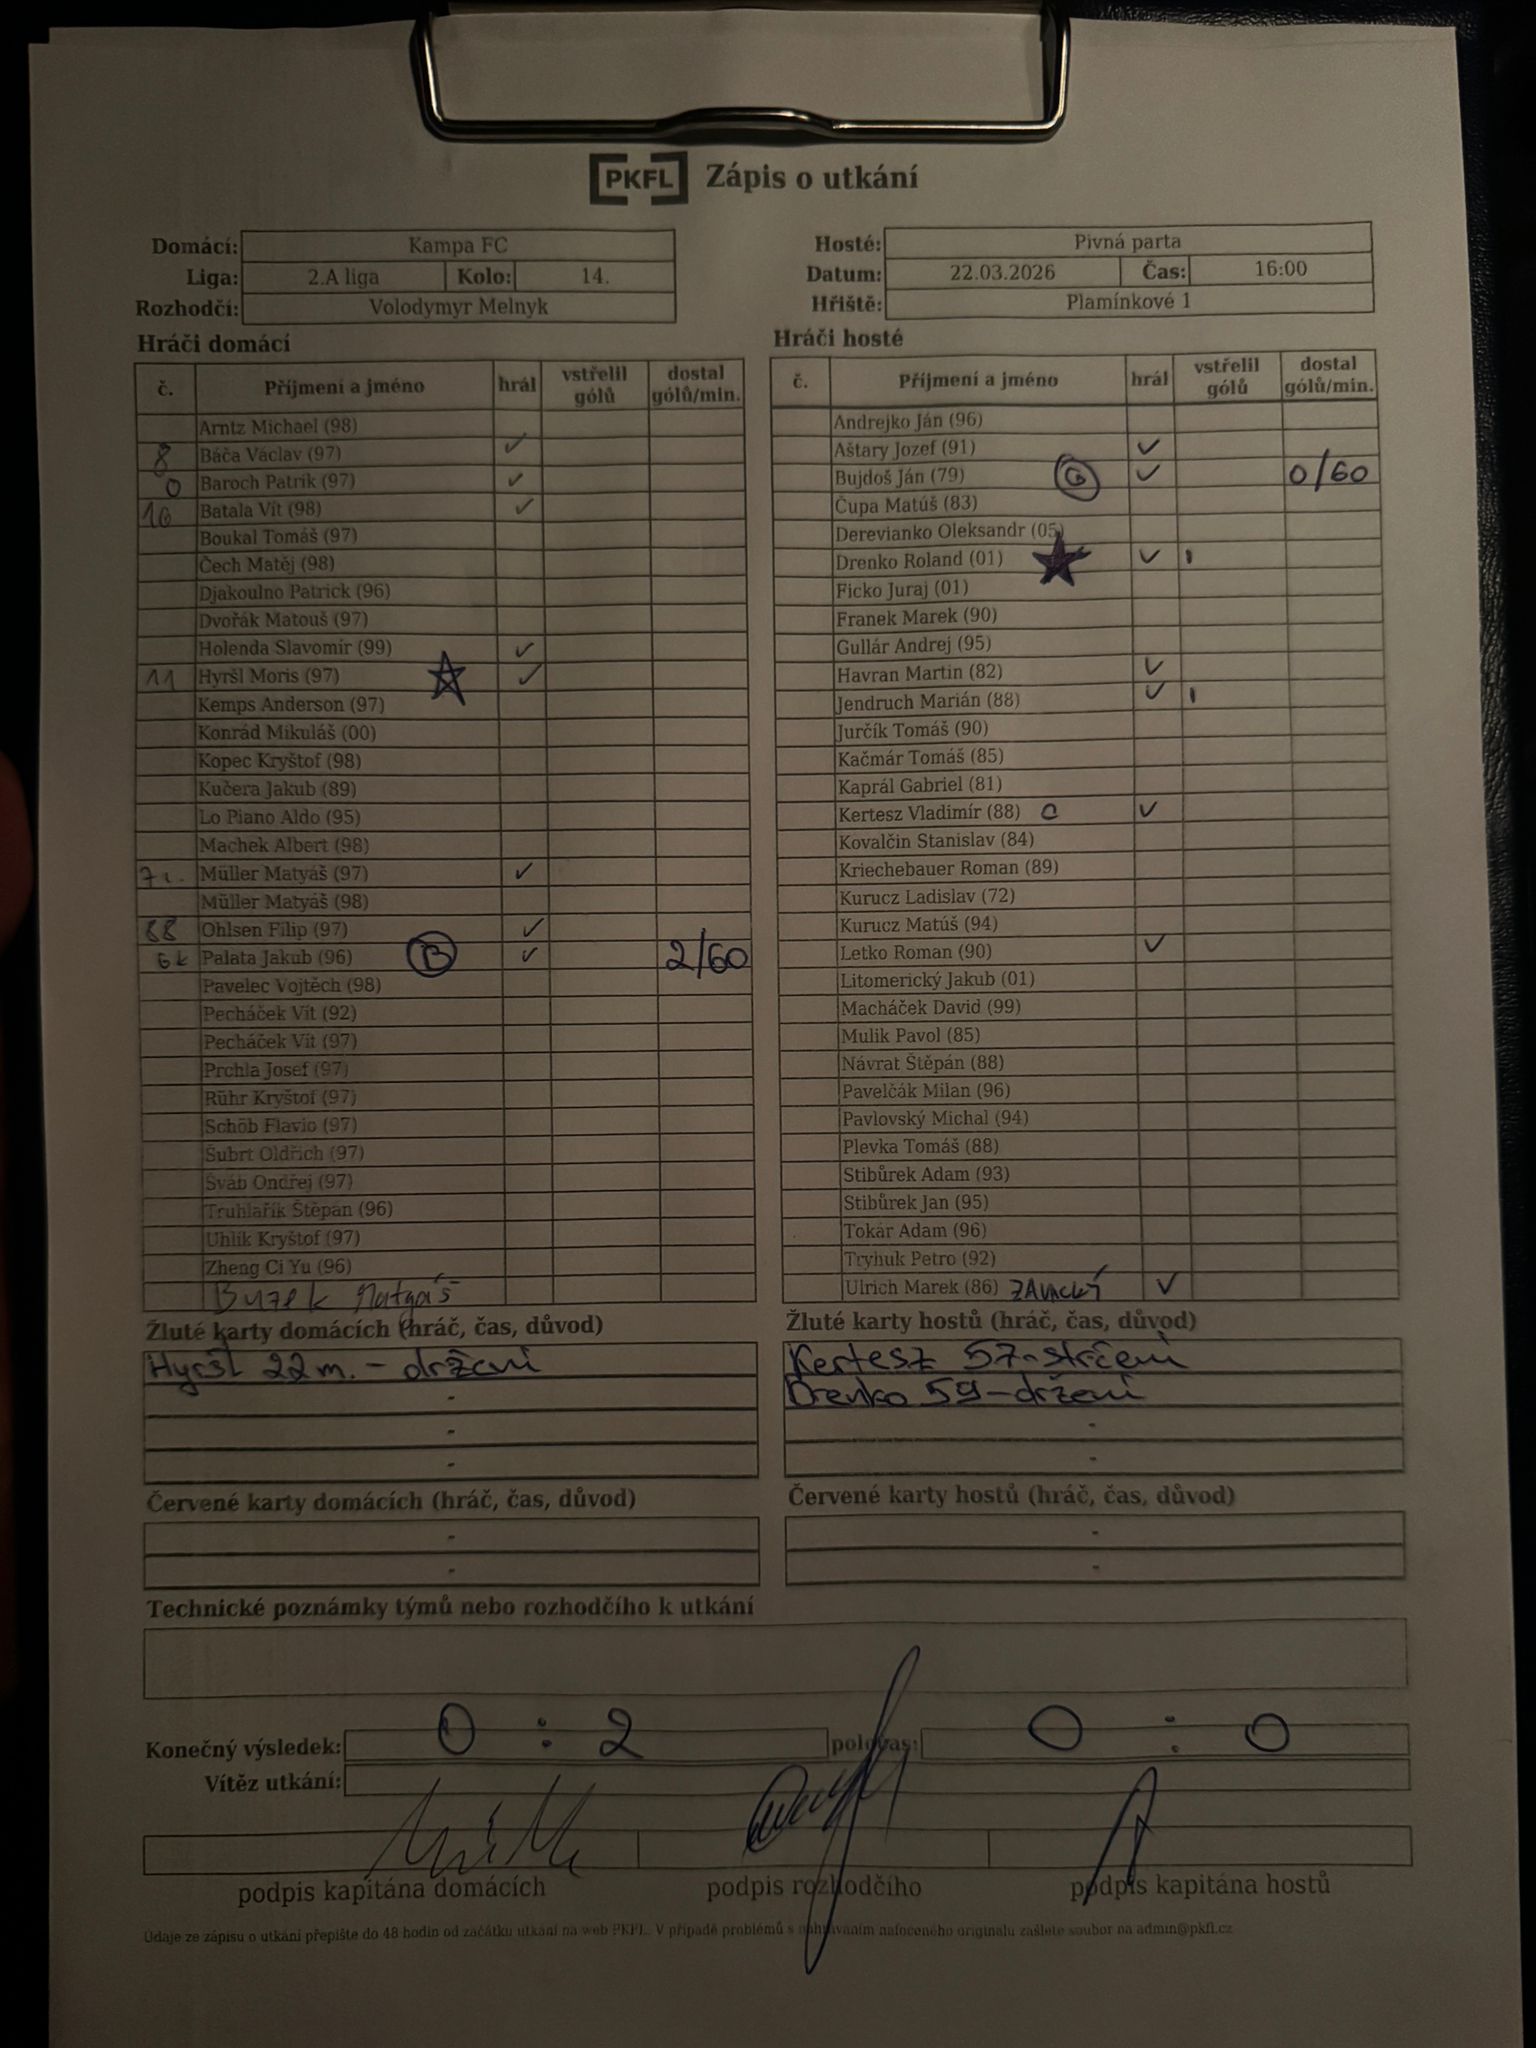 PKFL Zápis o utkání
Domácí: Kampa FC
Liga: 2.A liga Kolo: 14.
Rozhodčí: Volodymyr Melnyk
Hosté: Pivná parta
Datum: 22.03.2026 Čas: 16:00
Hřiště: Plamínkové 1
Hráči domácí
č. Příjmení a jméno hrál vstřelil gólů dostal gólů/min.
Arntz Michael (98)
8 Báča Václav (97) ✓
0 Baroch Patrik (97) ✓
16 Batala Vít (98) ✓
Boukal Tomáš (97)
Čech Matěj (98)
Djakoulno Patrick (96)
Dvořák Matouš (97)
Holenda Slavomír (99) ✓
11 Hyršl Moris (97) ✓
Kemps Anderson (97)
Konrád Mikuláš (00)
Kopec Kryštof (98)
Kučera Jakub (89)
Lo Piano Aldo (95)
Machek Albert (98)
7 Müller Matyáš (97) ✓
Müller Matyáš (98)
88 Ohlsen Filip (97) ✓
Palata Jakub (96) B ✓ 2/60
Pavelec Vojtěch (98)
Pecháček Vít (92)
Pecháček Vít (97)
Prchla Josef (97)
Rühr Kryštof (97)
Schöb Flavio (97)
Šubrt Oldřich (97)
Šváb Ondřej (97)
Truhlařík Štěpán (96)
Uhlík Kryštof (97)
Zheng Ci Yu (96)
Buzek Matyáš
Hráči hosté
č. Příjmení a jméno hrál vstřelil gólů dostal gólů/min.
Andrejko Ján (96)
Aštary Jozef (91) ✓
Bujdoš Ján (79) G ✓ 0/60
Čupa Matúš (83)
Derevianko Oleksandr (05)
Drenko Roland (01) ★ ✓ I
Ficko Juraj (01)
Franek Marek (90)
Gullár Andrej (95)
Havran Martin (82) ✓
Jendruch Marián (88) ✓ I
Jurčík Tomáš (90)
Kačmár Tomáš (85)
Kaprál Gabriel (81)
Kertesz Vladimír (88) C ✓
Kovalčin Stanislav (84)
Kriechebauer Roman (89)
Kurucz Ladislav (72)
Kurucz Matúš (94)
Letko Roman (90) ✓
Litomerický Jakub (01)
Macháček David (99)
Mulik Pavol (85)
Návrat Štěpán (88)
Pavelčák Milan (96)
Pavlovský Michal (94)
Plevka Tomáš (88)
Stibůrek Adam (93)
Stibůrek Jan (95)
Tokár Adam (96)
Tryhuk Petro (92)
Ulrich Marek (86) ZAVACKÝ ✓
Žluté karty domácích (hráč, čas, důvod)
Hyršl 22 m. - držení
-
-
-
Žluté karty hostů (hráč, čas, důvod)
Kertesz 57 - strčení
Drenko 59 - držení
-
-
Červené karty domácích (hráč, čas, důvod)
-
-
Červené karty hostů (hráč, čas, důvod)
-
-
Technické poznámky týmů nebo rozhodčího k utkání
Konečný výsledek: 0 : 2 poločas: 0 : 0
Vítěz utkání:
podpis kapitána domácích podpis rozhodčího podpis kapitána hostů
Údaje ze zápisu o utkání přepište do 48 hodin od začátku utkání na web PKFL. V případě problémů s nahráváním nafoceného originálu zašlete soubor na admin@pkfl.cz